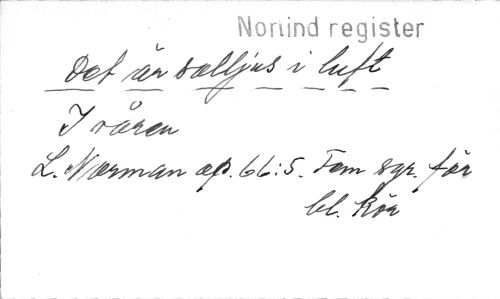 Norlind register
Det är solljus i luft
I våren
L. Norman op. 66:5. Fem sgr. för
bl. kör